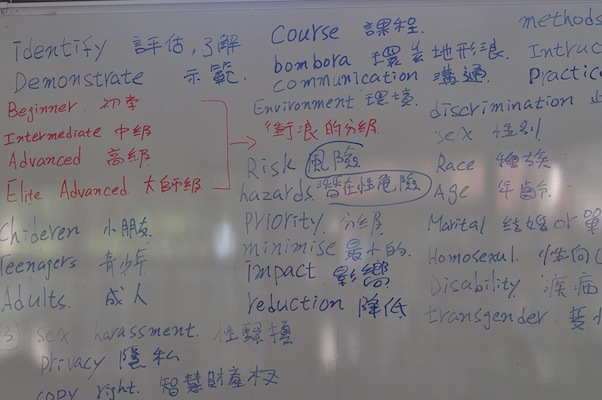 identify 評估,了解
Demonstrate 示範.
Beginner 初學
Intermediate 中級
Advanced 高級
Elite Advanced 大師級
Chideren 小朋友
Teenagers 青少年
Adults. 成人
③ sex harassment. 性騷擾
privacy 隱私
copy right. 智慧財產权
course 課程.
bombora 環岩地形浪.
communication 溝通.
Environment 環境.
衝浪的分級
Risk 風險
hazards 潛在性危險
Priority 分級
minimise 最小的.
impact 影響
reduction 降低
methods
Intruc
Practic
discrimination
sex 性别
Race 種族
Age 年齡.
Marital 結婚 or 單
Homosexual. 性向(
Disability 疾病
transgender.